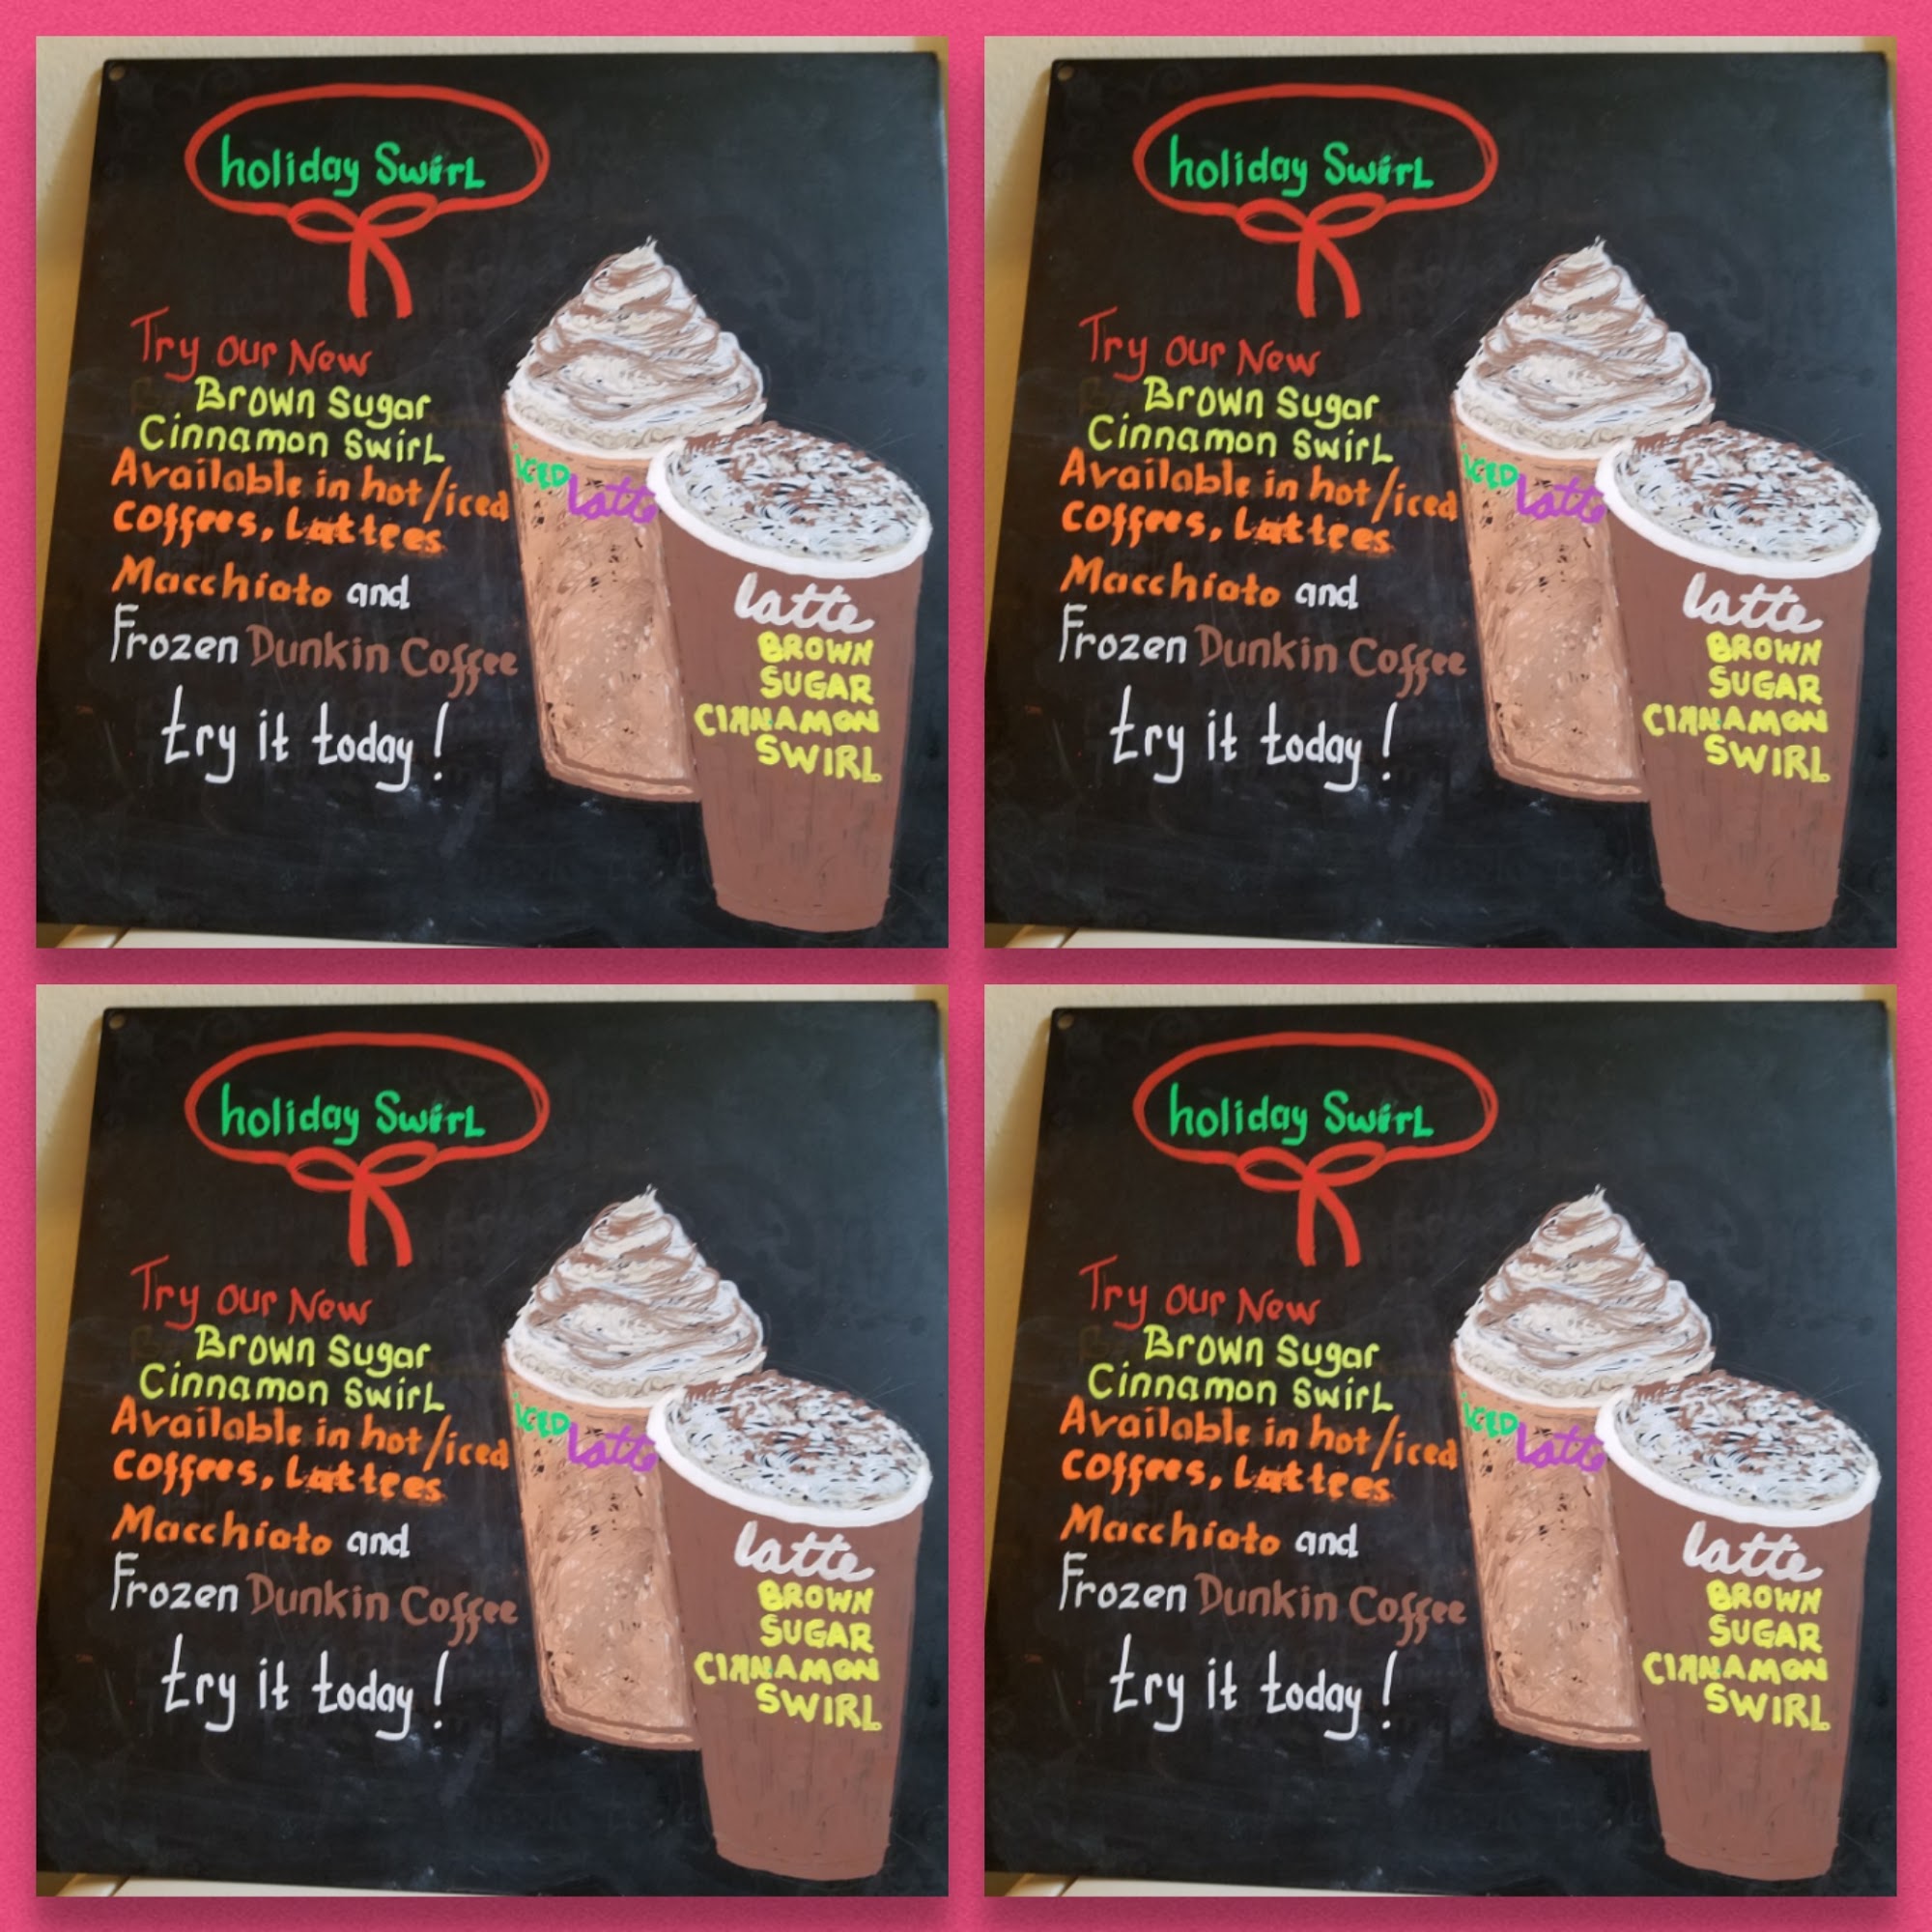 holiday SwirL
Try our New
Brown Sugar
Cinnamon SwirL
Available in hot/iced
coffees, Lattees
Macchiato and
Frozen Dunkin Coffee
try it today!
iCED
latte
latte
BROWN
SUGAR
CINNAMON
SWIRL
holiday SwirL
Try our New
Brown Sugar
Cinnamon SwirL
Available in hot/iced
coffees, Lattees
Macchiato and
Frozen Dunkin Coffee
try it today!
iCED
latte
latte
BROWN
SUGAR
CINNAMON
SWIRL
holiday SwirL
Try our New
Brown Sugar
Cinnamon SwirL
Available in hot/iced
coffees, Lattees
Macchiato and
Frozen Dunkin Coffee
try it today!
iCED
latte
latte
BROWN
SUGAR
CINNAMON
SWIRL
holiday SwirL
Try our New
Brown Sugar
Cinnamon SwirL
Available in hot/iced
coffees, Lattees
Macchiato and
Frozen Dunkin Coffee
try it today!
iCED
latte
latte
BROWN
SUGAR
CINNAMON
SWIRL